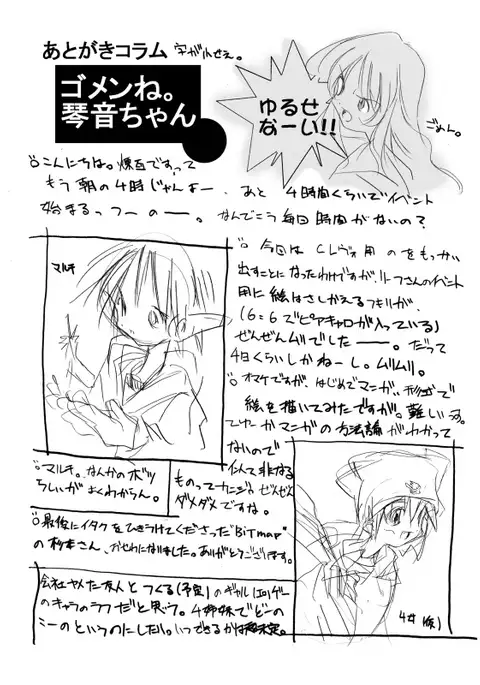 あとがきコラム 字が小せえ。
ゴメンね。
琴音ちゃん
ゆるせ
なーい!!
ごめん。
こんにちは。煉瓦ですって
もう朝の4時じゃんよー、あと 4時間くらいでイベント
始まるっつーのー。なんでこう毎回時間がないの?
マルチ
今回はCレヴォ用のをもっかい
出すことになったわけですが、リーフさんのイベント
用に絵はさしかえるつもりが、
(6=6でピアキャロが入っている)
ぜんぜんムリでしたー。だって
4日くらいしかねーし。ムリムリ。
オマケですが、はじめてマンガ形式で
絵を描いてみたですが。難しい
つーかマンガの方法論がわかって
ないので
似て非なる
ものってカンジ。ぜんぜん
ダメダメですな。
マルチ。なんかのボツ
らしいがよくわからん。
最後にイタクをひきうけてくださった"BiTmap"
の杉本さん、おせわになりました。ありがとうございます。
会社やめた友人とつくる(予定)のギャル(エロ)ゲー
のキャラのラフだと思う。4姉妹でどーの
こーのというのにしたい。いつできるかは未定。
4女(仮)